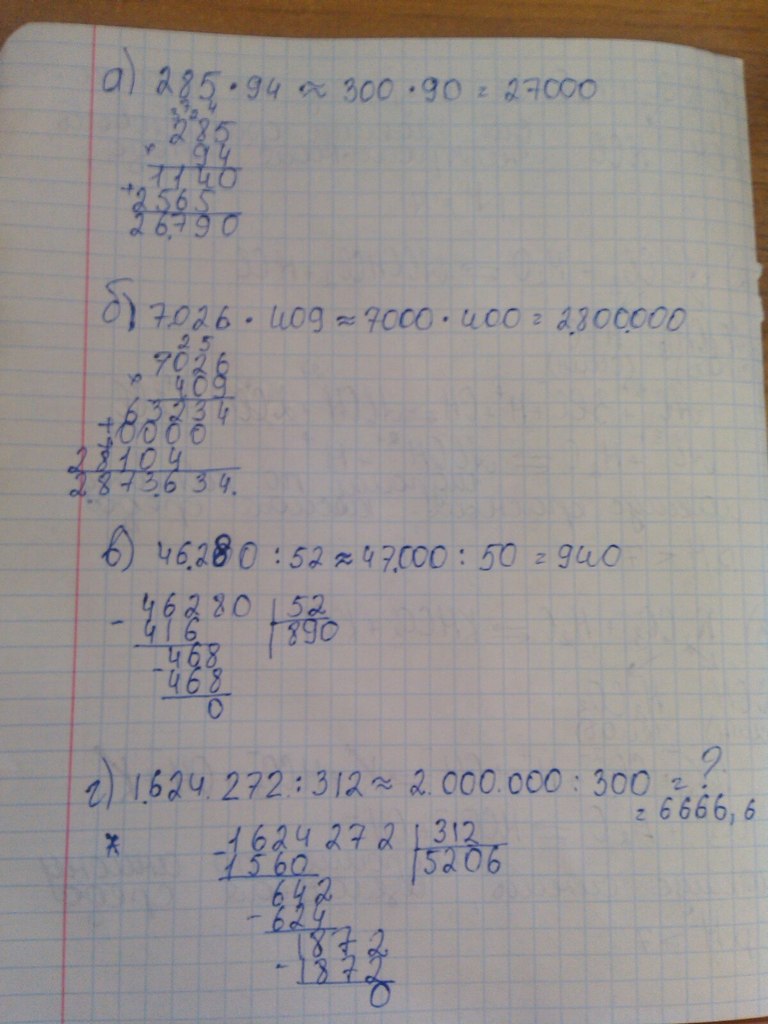 а) 285 · 94 ≈ 300 · 90 = 27000
285
× 94
1140
+ 2565
26.790
б) 7.026 · 409 ≈ 7000 · 400 = 2.800.000
2 5
7026
× 409
63234
+ 0000
28104
2.873.634.
в) 46.280 : 52 ≈ 47.000 : 50 = 940
- 46280 | 52
416 | 890
468
- 468
0
г) 1.624.272 : 312 ≈ 2.000.000 : 300 = ?
= 6666,6
* - 1624272 | 312
1560 | 5206
642
- 624
1872
- 1872
0